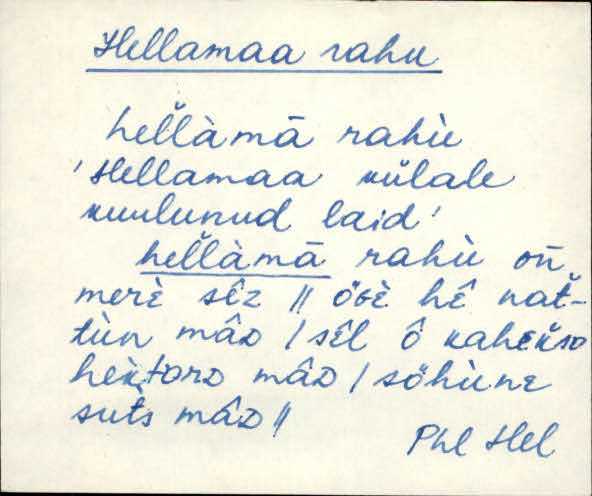 Hellamaa rahu
hel̆l̀àmā rahù
'Hellamaa külale
kuulunud laid'
hel̆l̀àmā rahù on̄
merè sêz || öʙè hê nat̆-
tùn mâᴅ / sêl ô kahek̆sa
hèktarᴅ mâᴅ / söhùne
sut̀s mâᴅ ||
Phl Hel